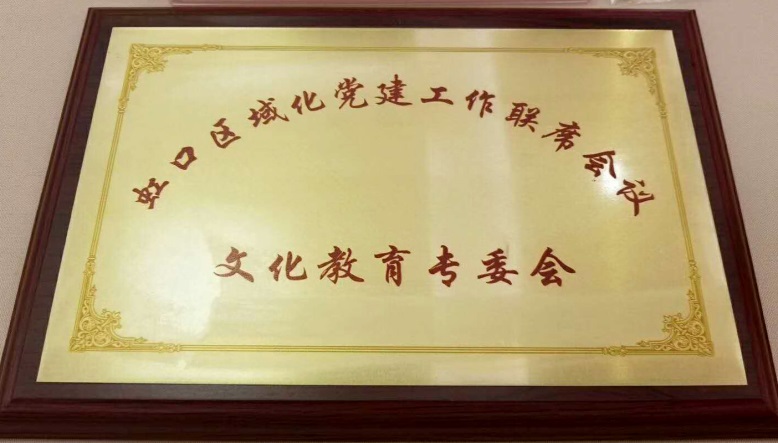 虹口区域化党建工作联席会议
文化教育专委会